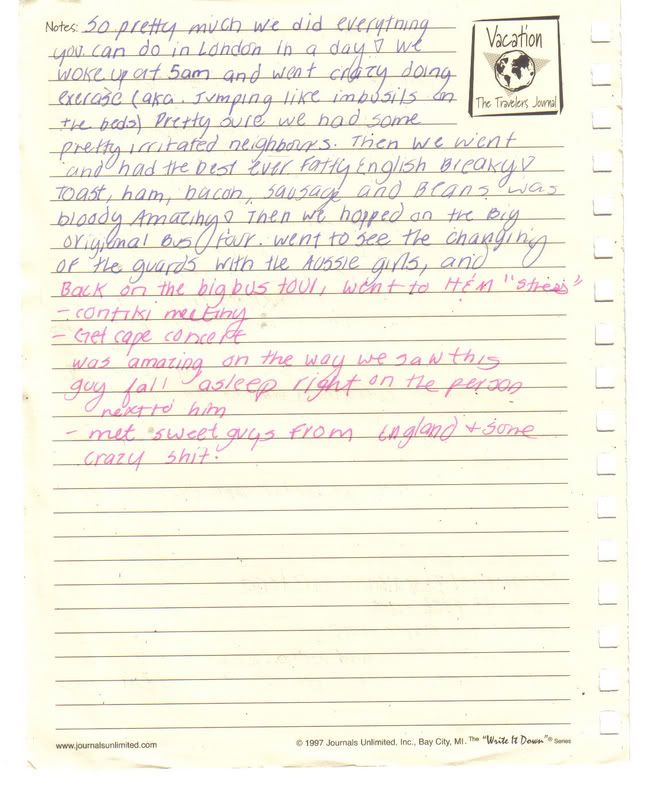 Notes: So pretty much we did everything
you can do in London in a day ♡ we
woke up at 5am and went crazy doing
exercise (aka. Jumping like imbusils on
the beds) Pretty sure we had some
pretty irritated neighbours. Then we went
and had the best ever Fatty English Breaky ♡
Toast, ham, bacon, sausage and Beans was
bloody Amazing ♡ Then we hopped on the Big
Original Bus Tour. went to see the changing
of the guards with the Aussie girls, and
Back on the big bus tour, went to H&M "
- contiki meeting
- Get cape concert
was amazing on the way we saw this
guy fall asleep right on the person
next to him
- met sweet guys from England + some
crazy shit.
Vacation
The Travelers Journal
www.journalsunlimited.com
© 1997 Journals Unlimited, Inc., Bay City, MI. The "Write It Down"® Series